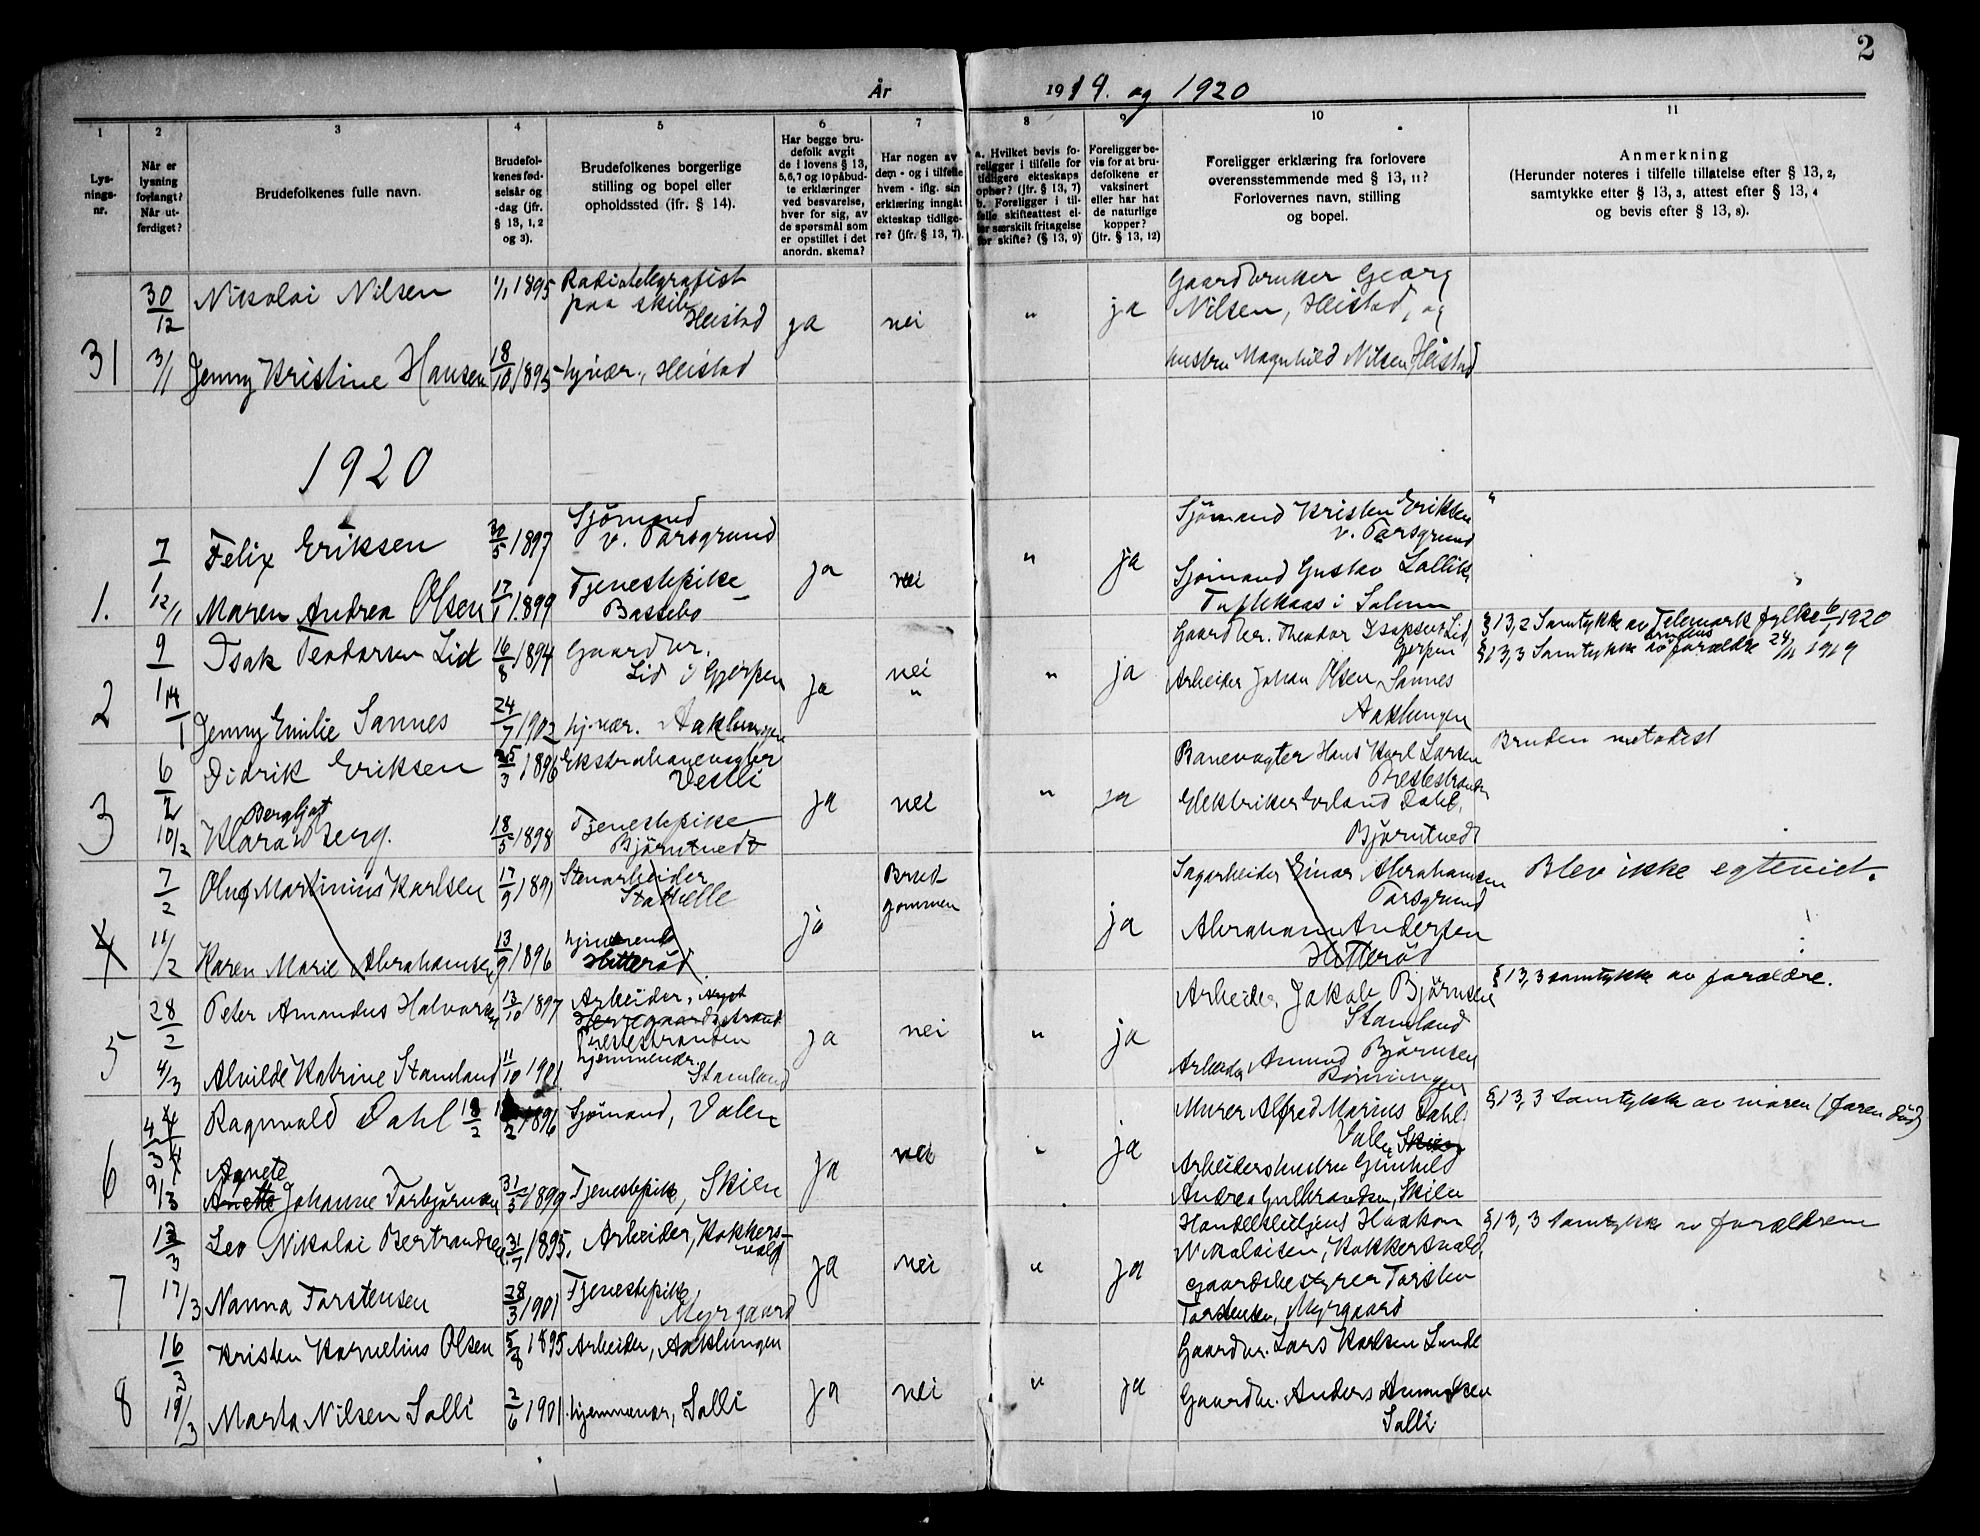 2
År 1919. og 1920
1 2 3 4 5 6 7 8 9 10 11
Lys-
nings-
nr.
Når er
lysning
forlangt?
Når ut-
ferdiget?
Brudefolkenes fulle navn.
Brudefol-
kenes fød-
selsår og
-dag (jfr.
§ 13, 1, 2
og 3).
Brudefolkenes borgerlige
stilling og bopel eller
opholdssted (jfr. § 14).
Har begge bru-
defolk avgit
de i lovens § 13,
5,6,7 og 10 påbud-
te erklæringer
ved besvarelse,
hver for sig, av
de spørsmål som
er opstillet i det
anordn. skema?
Har nogen av
dem - og i tilfelle
hvem - iflg. sin
erklæring inngåt
ekteskap tidlige-
re? (jfr. § 13, 7).
a. Hvilket bevis fo-
religger i tilfelle for
tidligere ekteskaps
ophør? (jfr. § 13, 7)
b. Foreligger i til-
felle skifteattest el-
ler særskilt fritagelse
for skifte? (§ 13, 9)
Foreligger be-
vis for at bru-
defolkene er
vaksinert
eller har hat
de naturlige
kopper?
(jfr. § 13, 12)
Foreligger erklæring fra forlovere
overensstemmende med § 13, 11?
Forlovernes navn, stilling
og bopel.
Anmerkning
(Herunder noteres i tilfelle tillatelse efter § 13, 2,
samtykke efter § 13, 3, attest efter § 13, 4
og bevis efter § 13, 8).
31
30/12
3/1
Nikolai Nilsen
Jenny Kristine Hansen
1/1 1895
18/10 1895
Radiotelegrafist
paa skib
Heistad
hjvær., Heistad
ja
nei
"
ja
Gaardbruker Georg
Nilsen, Heistad, og
hustru Magnhild Nilsen Heistad
1920
1.
7/1
12/1
Felix Eriksen
Maren Andrea Olsen
30/5 1897
17/1 1899
Sjömand
v. Porsgrund
Tjenestepike
Bassebo
ja
nei
"
ja
Sjömand Kristen Eriksen
v. Porsgrund
Sjömand Gustav
i
"
2
9/1
14/1
Isak Teodorsen Lid
Jenny Emilie Sannes
16/8 1894
24/7 1902
Gaardbr.
Lid i Gjerpen
hjvær. Aaklungen
ja
nei
"
"
ja
Gaardbr. Theodor Isaksen Lid,
Gjerpen
Arbeider Johan Olsen Sannes
Aaklungen
§ 13,2 Samtykke av Telemark fylke 6/1 1920
§ 13,3 Samtykke av brudens forældre 24/11 1919
3
6/2
10/2
Didrik Eriksen
Bergljot
Klara Berg.
25/3 1896
18/5 1898
Ekstrabanevogter
Vestli
Tjenestepike
Björntvedt
ja
nei
"
ja
Banevogter Hans Karl Larsen
Prestestranden
Elektriker Erland Dahl,
Björntvedt
Bruden metodist
4
7/2
11/2
Oluf Martinius Karlsen
Karen Marie Abrahamsen
17/9 1891
13/9 1896
Stenarbeider
Stathelle
hjmværende
Hitteröd.
ja
Brud-
gommen
ja
Sagarbeider Einar Abrahamsen
Porsgrund
Abraham Andersen
Hitteröd
Blev ikke egteviet.
5
28/2
4/3
Peter Amandus Halvorsen
Alvilde Katrine Stamland
13/10 1897
11/10 1901
Arbeider,
Herregaardsstrand
Prestestranden
hjemmevær
Stamland
ja
nei
"
ja
Arbeider Jakob Björnsen
Stamland
Arbeider Amund Björnsen
§ 13,3 samtykke av forældre.
6
4/3
9/3
Ragnvald Dahl 18/2
Agnete
Anette Johanne Torbjörnsen
1896
31/5 1899
Sjömand, Valen
Tjenestepike, Skien
ja
nei
"
ja
Murer Alfred Marius Dahl.
Valle Skien
Arbeiderhustru Gunhild
Andrea Gulbrandsen, Skien
§ 13,3 samtykke av moren (faren död)
7
13/3
17/3
Leo Nikolai Bertrandsen
Nanna Torstensen
31/7 1895.
28/3 1901
Arbeider, Kokkers-
vold
Tjenestepike
Myrgaard
ja
nei
"
ja
Handelsbetjent Haakon
Nikolaisen, Kokkersvold,
gaardsbestyrer Torsten
Torstensen, Myrgaard
§ 13,3 samtykke av forældrene
8
16/3
19/3
Kristen Kornelius Olsen
Marta Nilsen Salli
5/8 1895
2/6 1901.
Arbeider, Aaklungen
hjemmevær, Salli
ja
nei
"
ja
Gaardbr. Lars Karlsen Lunde
Gaardbr. Anders Amundsen
Salli